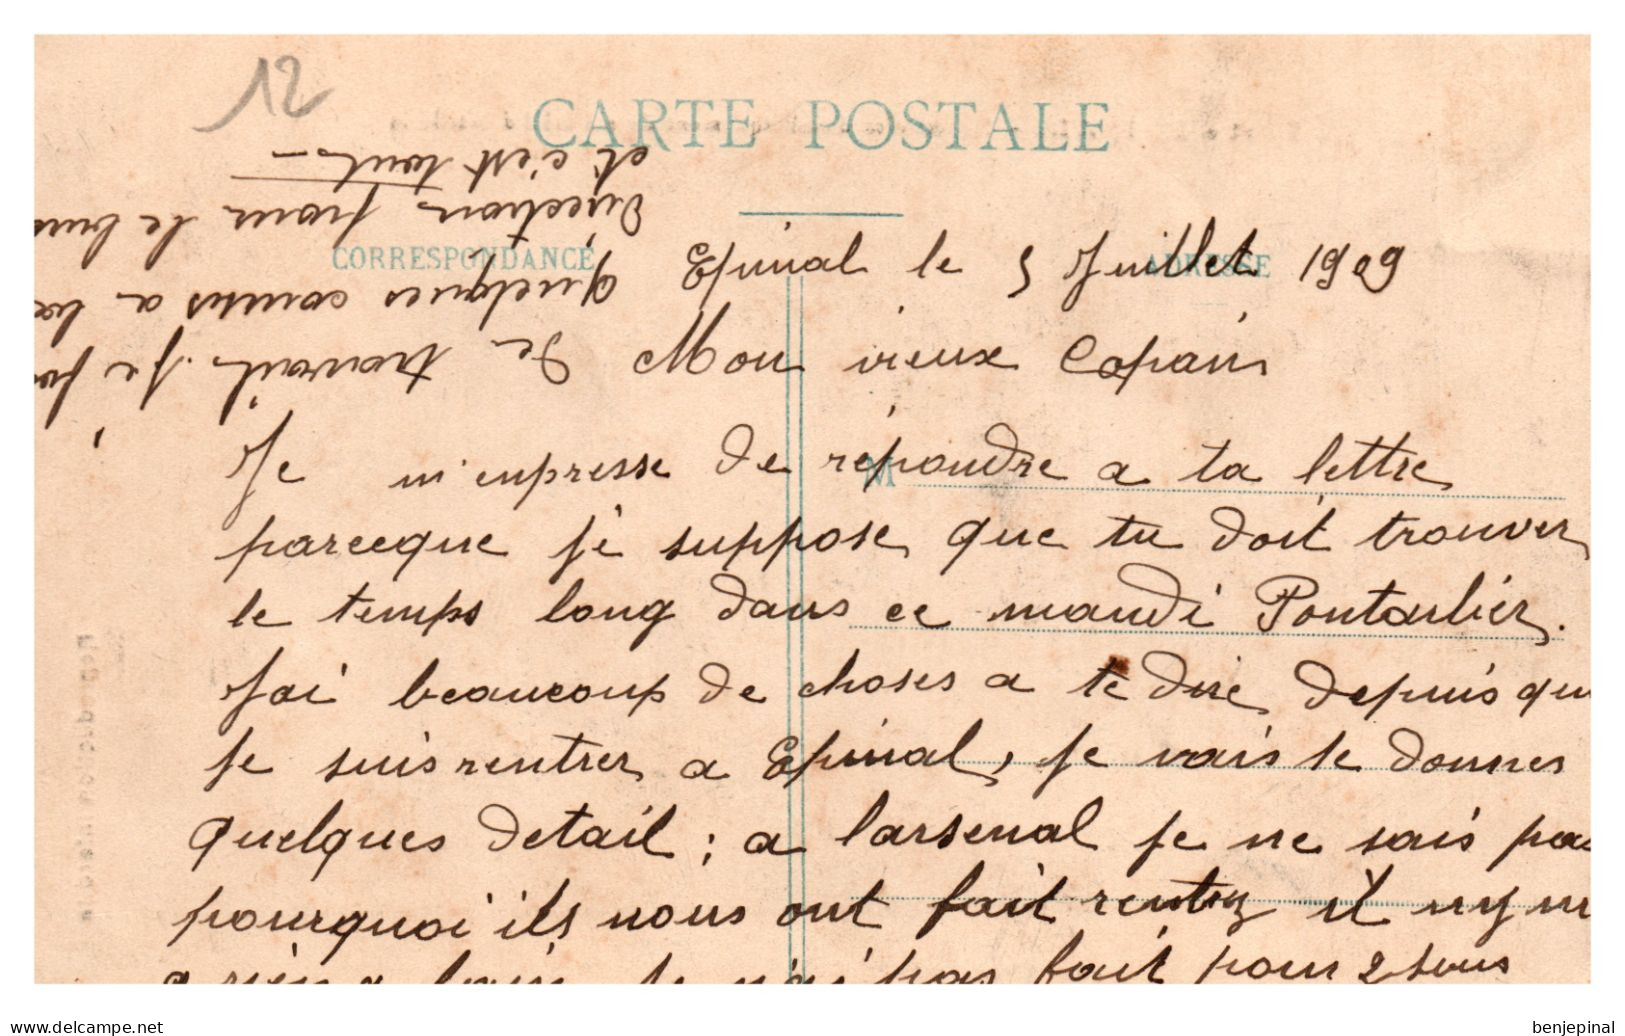 12
CARTE POSTALE
CORRESPONDANCE
ADRESSE
Epinal le 5 Juillet 1909
Mon vieux Copain
M
Je m'enpresse de répondre a ta lettre
parceeque je suppose que tu doit trouver
le temps long dans ce maudi Pontarlier.
Jai beaucoup de choses a te dire depuis qu
je suis rentrer a Epinal, je vais te donner
quelques detail ; a larsenal je ne sais pas
pourquoi ils nous ont fait rentrez il ny
a rien a je n'ai pas fait pour 2 sous
de travail. Je
quelques courses a
direction pour le
et c'est tout
www.delcampe.net
benjepinal